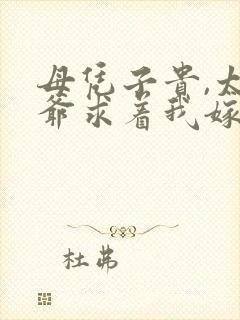 母凭子贵,太
爷求着我嫁
杜弗